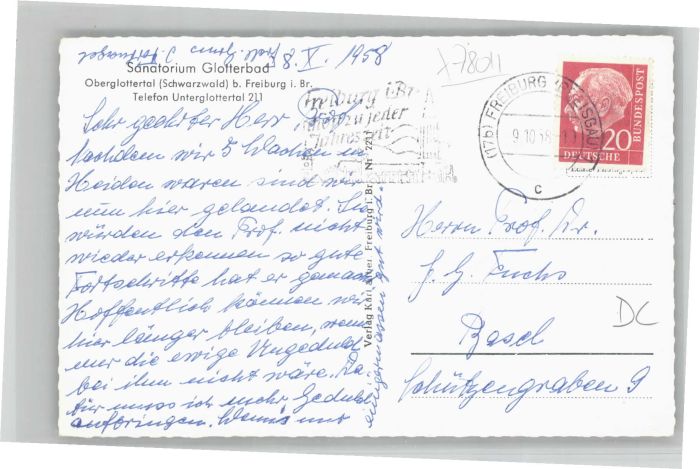 8. X. 1958
Sanatorium Glotterbad
Oberglottertal (Schwarzwald) b. Freiburg i. Br.
Telefon Unterglottertal 211
Sehr geehrter Herr Prof.
Nachdem wir 5 Wochen in
Heiden waren sind wir
nun hier gelandet. Sie
würden den Prof. nicht
wieder erkennen so gute
Fortschritte hat er gemacht.
Hoffentlich können wir
hier länger bleiben, wenn
nur die ewige Ungeduld
bei ihm nicht wäre. Da
für muss ich mehr Geduld
aufbringen. Wenns nur
einigermassen gut wird.
Verlag Karl Alber, Freiburg i. Br. Nr. 2211
Freiburg i. Br.
zu jeder
Jahreszeit
(17b) FREIBURG (BREISGAU)
9.10.58
c
20
DEUTSCHE
BUNDESPOST
x78011
Herrn Prof. Dr.
J. G. Fuchs
Basel
Schützengraben 9
DC